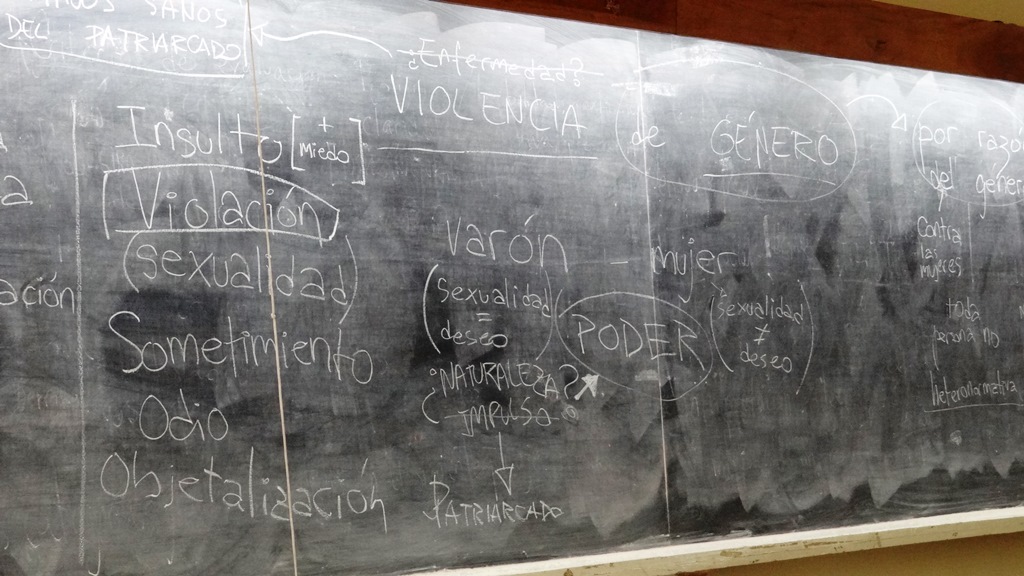 SANOS
DEL PATRIARCADO
Insulto [+ miedo]
Violación
(sexualidad)
Sometimiento
Odio
Objetalización
ación
¿Enfermedad?
VIOLENCIA de GÉNERO
varón - mujer
(sexualidad = deseo)
PODER
(sexualidad ≠ deseo)
¿NATURALEZA?
IMPULSO
PATRIARCADO
por razón
del géner
Contra
las
mujeres
toda
persona no
heteronormativa